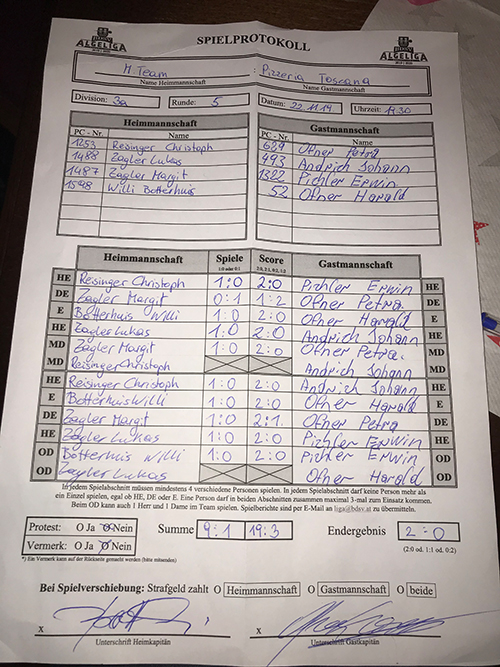 SPIELPROTOKOLL
ALGELIGA ALGELIGA
H.Team : Pizzeria Toscana
Name Heimmannschaft Name Gastmannschaft
Division: 3a Runde: 5 Datum: 22.11.19 Uhrzeit: 19.30
Heimmannschaft Gastmannschaft
PC - Nr. Name PC - Nr. Name
1253 Reisinger Christoph 689 Ofner Petra
1488 Zagler Lukas 493 Andrich Johann
1487 Zagler Margit 1322 Pichler Erwin
1598 Willi Botterhuis 52 Ofner Harald
Heimmannschaft Spiele Score Gastmannschaft
1:0 oder 0:1 2:0, 2:1, 0:2, 1:2
HE Reisinger Christoph 1:0 2:0 Pichler Erwin HE
DE Zagler Margit 0:1 1:2 Ofner Petra DE
E Botterhuis Willi 1:0 2:0 Ofner Harald E
HE Zagler Lukas 1:0 2:0 Andrich Johann HE
MD Zagler Margit 1:0 2:0 Ofner Petra. MD
MD Reisinger Christoph Andrich Johann MD
HE Reisinger Christoph 1:0 2:0 Andrich Johann HE
E Botterhuis Willi 1:0 2:0 Ofner Harald E
DE Zagler Margit 1:0 2:1. Ofner Petra DE
HE Zagler Lukas 1:0 2:0 Pichler Erwin HE
OD Botterhuis Willi 1:0 2:0 Pichler Erwin OD
OD Zagler Lukas Ofner Harald OD
In jedem Spielabschnitt müssen mindestens 4 verschiedene Personen spielen. In jedem Spielabschnitt darf keine Person mehr als
ein Einzel spielen, egal ob HE, DE oder E. Eine Person darf in beiden Abschnitten zusammen maximal 3-mal zum Einsatz kommen.
Beim OD kann auch 1 Herr und 1 Dame im Team spielen. Spielberichte sind per E-Mail an liga@bdsv.at zu übermitteln.
Protest: O Ja O Nein Summe 9:1 19:3 Endergebnis 2:0
Vermerk: O Ja O Nein (2:0 od. 1:1 od. 0:2)
*) Ein Vermerk kann auf der Rückseite gemacht werden (bitte mitsenden)
Bei Spielverschiebung: Strafgeld zahlt O Heimmannschaft O Gastmannschaft O beide
x x
Unterschrift Heimkapitän Unterschrift Gastkapitän